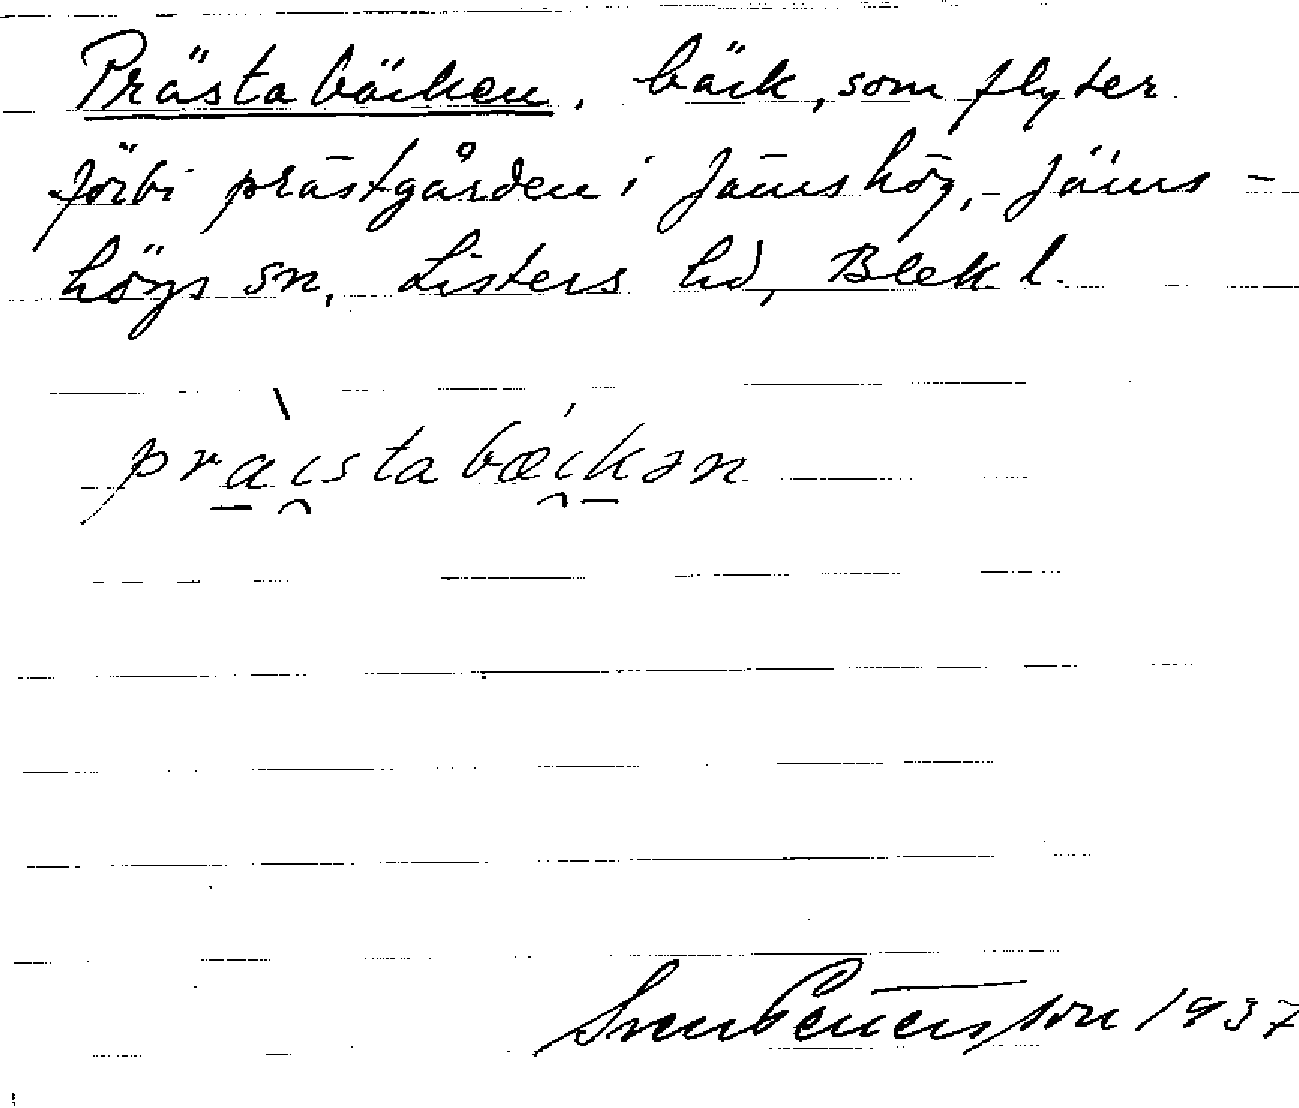 Prästabäcken, bäck, som flyter
förbi prästgården i Jämshög, Jäms-
högs sn, Listers hd, Blek l.
pràistabœ́ikən
Sven Benterson 1937